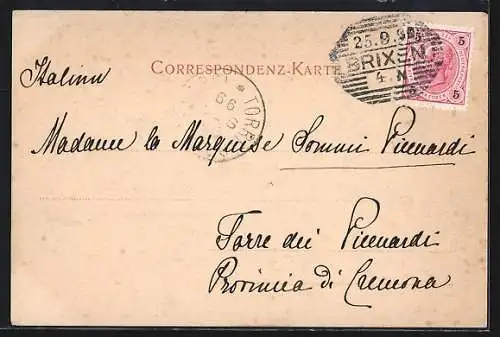 CORRESPONDENZ-KARTE
25.9.99
BRIXEN
4. N
5 5
5
TORRE
99
Italien
Madame la Marquise Sommi Picenardi
Torre dei Picenardi
Provincia di Cremona